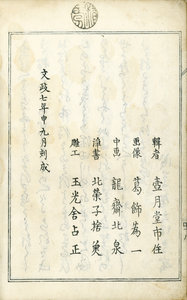 輯者 壺月堂市住
画像 葛飾為一
中画 龍齋北泉
浄書 北榮子捨魚
雕工 玉光舎占正
文政七年申九月刻成